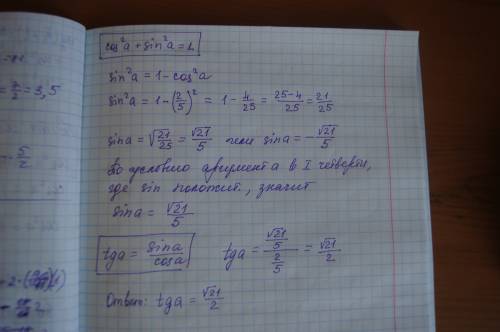 cos²a + sin²a = 1
sin²a = 1 - cos²a
= 7/2 = 3,5
sin²a = 1 - (2/5)² = 1 - 4/25 = (25-4)/25 = 21/25
- 5/2
sina = √(21/25) = √21/5 или sina = - √21/5
По условию аргумент а в I четверти,
где sin положит., значит
sina = √21/5
tga = sina/cosa tga = (√21/5)/(2/5) = √21/2
Ответ: tga = √21/2